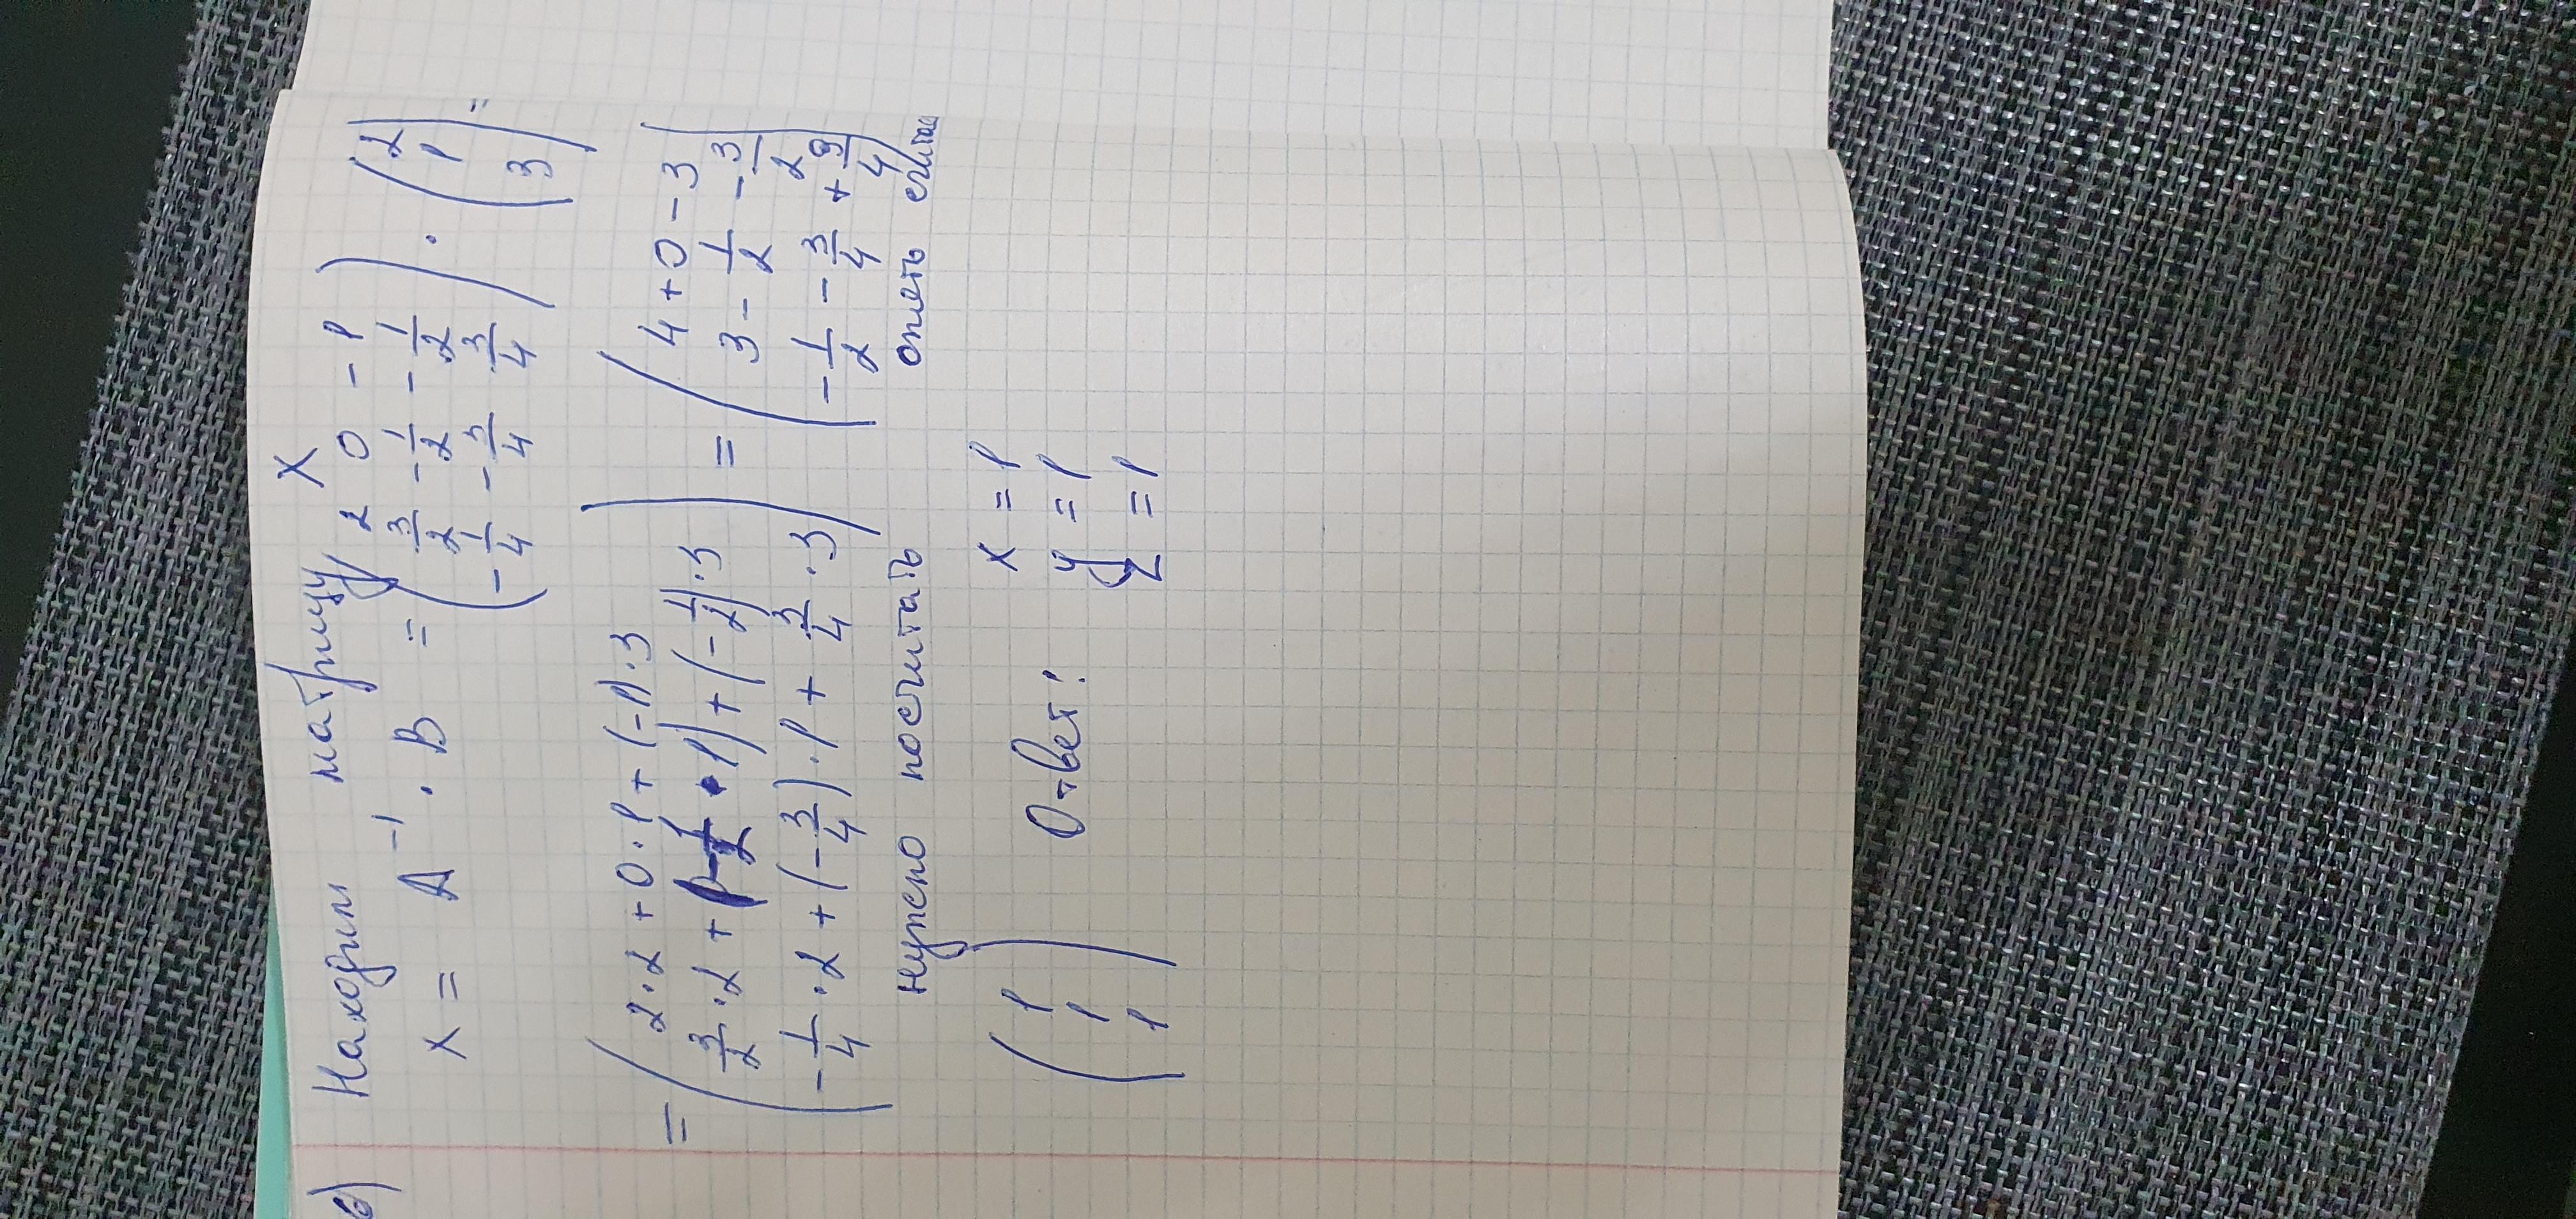 6) Находим матрицу X
X = A⁻¹ · B = ( 2 0 -1
3/2 -1/2 -1/2
-1/4 -3/4 3/4 ) · ( 2
1
3 ) =
= ( 2·2 + 0·1 + (-1)·3
3/2·2 + (-1/2·1) + (-1/2)·3
-1/4·2 + (-3/4)·1 + 3/4·3 ) = ( 4+0-3
3-1/2-3/2
-1/2-3/4+9/4 )
нужно посчитать опять
( 1
1
1 ) Ответ: x = 1
y = 1
z = 1